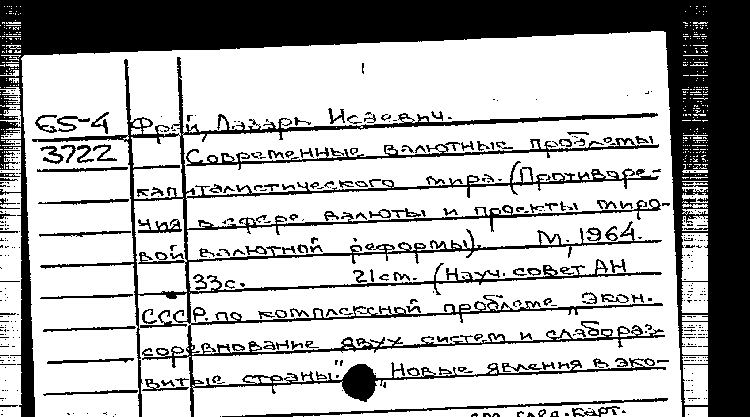 65-4 Фрей, Лазарь Исаевич.
3722 Современные валютные проблемы
капиталистического мира. (Противоре-
чия в сфере валюты и проекты миро-
вой валютной реформы). М., 1964.
33с. 21см. (Науч. совет АН
СССР по комплексной проблеме „Экон.
соревнование двух систем и слабораз-
витые страны." „Новые явления в эко-
см. след. карт.